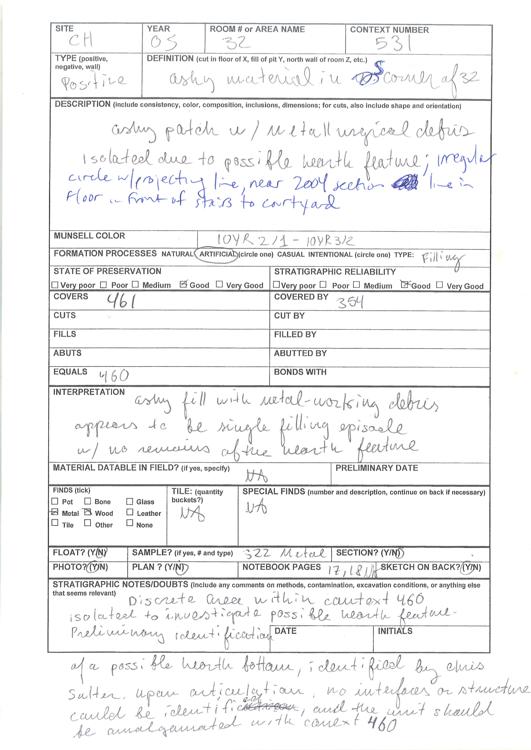 SITE YEAR ROOM # or AREA NAME CONTEXT NUMBER
CH 05 32 531
TYPE (positive, negative, wall) DEFINITION (cut in floor of X, fill of pit Y, north wall of room Z, etc.)
Positive ashy material in S corner of 32
DESCRIPTION (include consistency, color, composition, inclusions, dimensions; for cuts, also include shape and orientation)
ashy patch w/ metallurgical debris
isolated due to possible hearth feature; irregular
circle w/projecting line, near 2004 section line in
floor in front of stairs to courtyard
MUNSELL COLOR 10YR 2/1 - 10YR3/2
FORMATION PROCESSES NATURAL ARTIFICIAL (circle one) CASUAL INTENTIONAL (circle one) TYPE: Filling
STATE OF PRESERVATION STRATIGRAPHIC RELIABILITY
Very poor Poor Medium Good Very Good Very poor Poor Medium Good Very Good
COVERS 461 COVERED BY 354
CUTS CUT BY
FILLS FILLED BY
ABUTS ABUTTED BY
EQUALS 460 BONDS WITH
INTERPRETATION
ashy fill with metal-working debris
appears to be single filling episode
w/ no remains of the hearth feature
MATERIAL DATABLE IN FIELD? (if yes, specify) NA PRELIMINARY DATE
FINDS (tick) TILE: (quantity buckets?) SPECIAL FINDS (number and description, continue on back if necessary)
Pot Bone Glass
Metal Wood Leather NA NA
Tile Other None
FLOAT? (Y/N) SAMPLE? (if yes, # and type) 322 Metal SECTION? (Y/N)
PHOTO? (Y/N) PLAN ? (Y/N) NOTEBOOK PAGES 17, SKETCH ON BACK? (Y/N)
STRATIGRAPHIC NOTES/DOUBTS (Include any comments on methods, contamination, excavation conditions, or anything else
that seems relevant)
Discrete area within context 460
isolated to investigate possible hearth feature.
Preliminary identification DATE INITIALS
of a possible hearth bottom, identified by Chris
Salter. upon articulation, no interfaces or structure
could be identified, and the unit should
be amalgamated with context 460